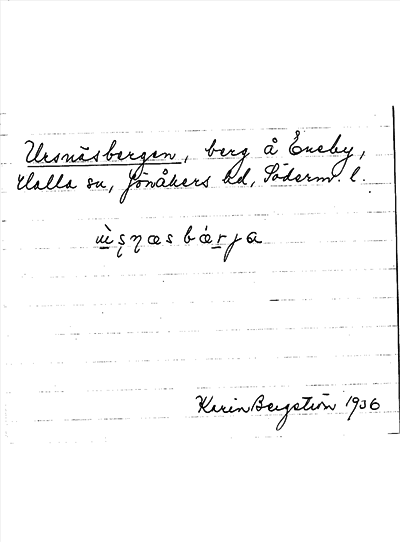 Ursnäsbergen, berg å Eneby,
Halla sn, Jönåkers hd, Söderm. l.
Karin Bergström 1936